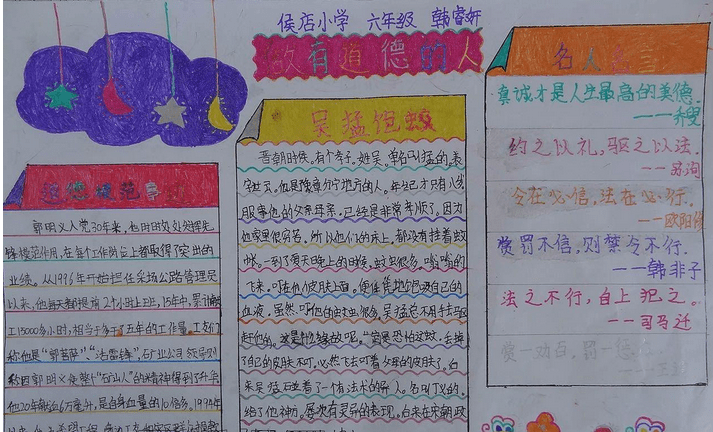 侯店小学 六年级 韩睿妍
做有道德的人
道德模范事迹
郭明义入党30年来,他时时处处发挥先
锋模范作用,在每个工作岗位上都取得了突出的
业绩。从1996年开始担任采场公路管理员
以来,他每天都提前2个小时上班,15年中,累计献
工15000多小时,相当于多干了五年的工作量。工友们
称他是“郭菩萨”、“活雷锋”,矿业公司领导则
称因郭明义使整个“矿山人”的精神得到了升华
他20年献血6万毫升,是自身血量的10倍多。1994年
吴猛饱蚊
晋朝时候,有个孝子,姓吴,单名叫猛的,表
字世云。他是豫章分宁地方的人。年纪才只有八岁
服事他的父亲母亲,已经是非常孝顺了。因为
他家里很穷苦。所以他们的床上,都没有挂着蚊
帐。一到了夏天晚上的时候,蚊虫很多,嗡嗡的
飞来。叮在他皮肤上面,便任凭他们吸自己的
血液,虽然叮他的蚊虫很多,吴猛总不用手去驱
赶他的。这是什么缘故呢。因果恐怕这蚊,去掉
了自己的皮肤不叮,必然飞去叮着父母的皮肤了。后
来吴猛碰着了一个有法术的异人。名叫丁义的,
给了他神方。屡次有灵异的表现。后来在宋朝政
名人名言
真诚才是人生最高的美德。
——乔叟
约之以礼,驱之以法。
——苏洵
令在必信,法在必行。
——欧阳修
赏罚不信,则禁令不行。
——韩非子
法之不行,自上犯之。
——司马迁